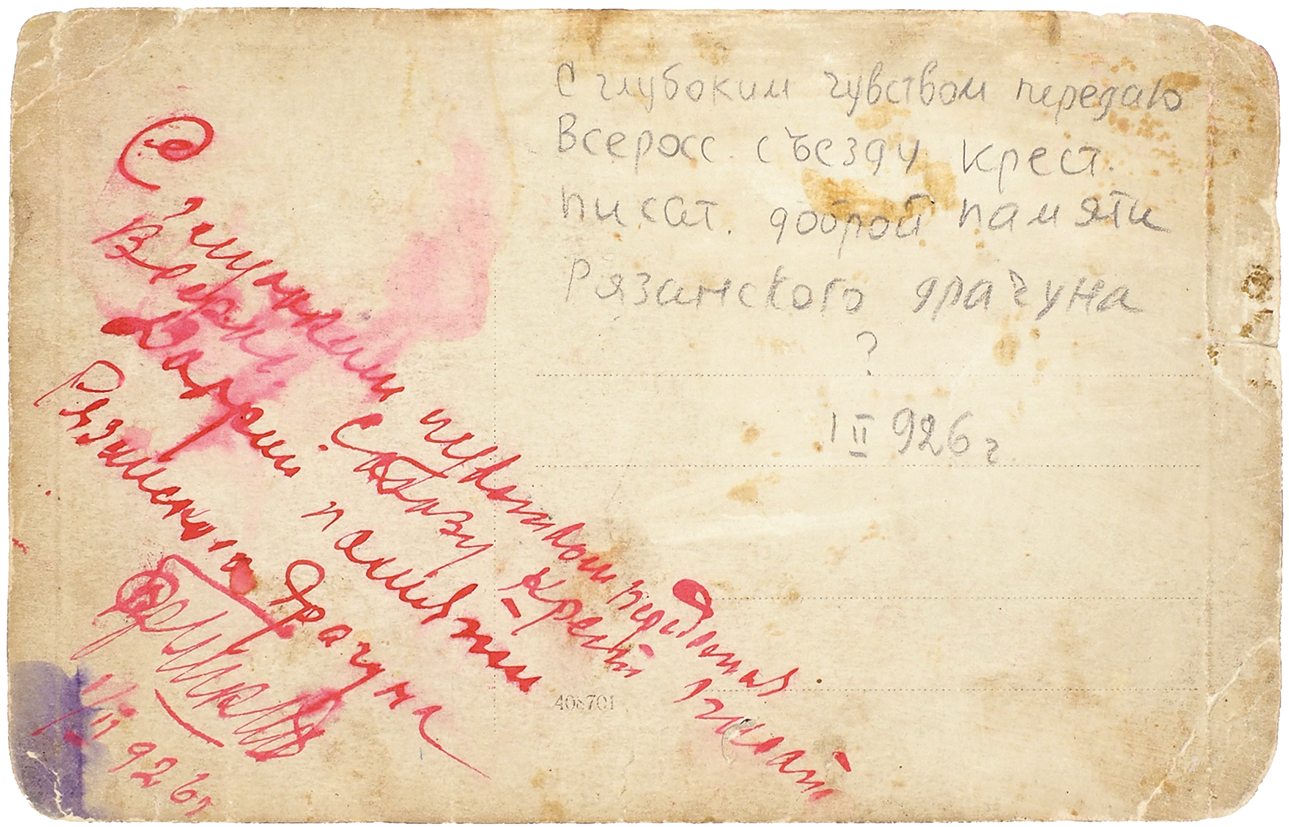 С глубоким чувством передаю
Всеросс. съезду крест.
писат. доброй памяти
Рязанского драчуна
?
1 II 926 г
С глубоким чувством передаю
съезду Крест писат
Доброй памяти
Рязанского драчуна
1/II 926 г
408701